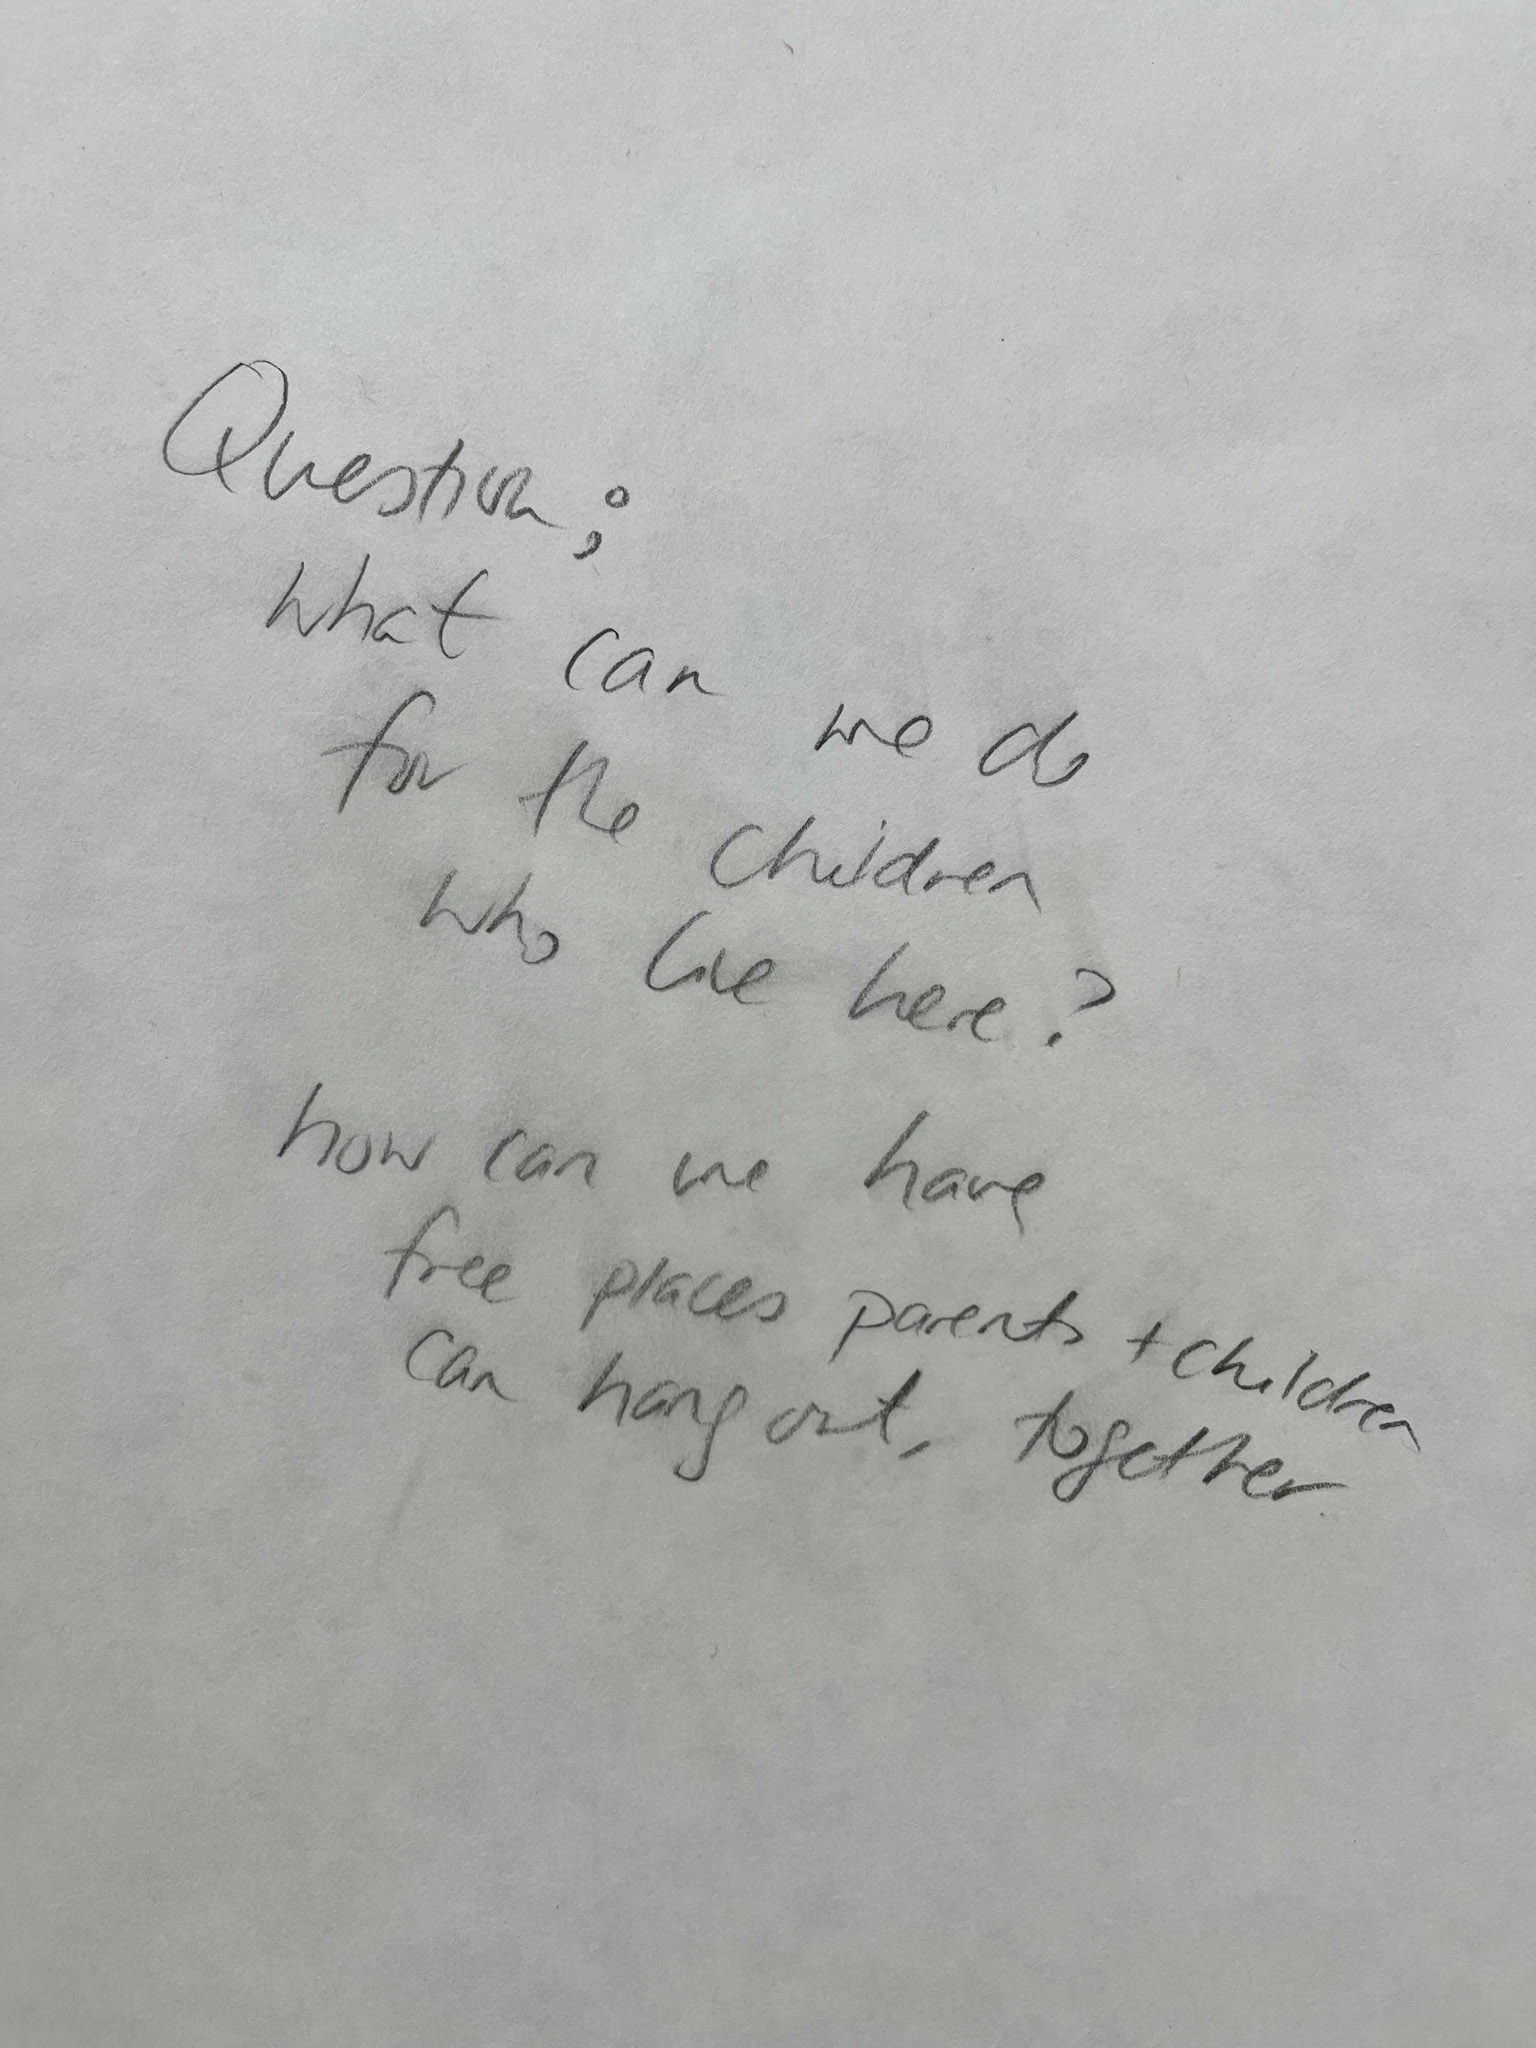 Question;
what can we do
for the children
who live here?
how can we have
free places parents + children
can hang out, together.